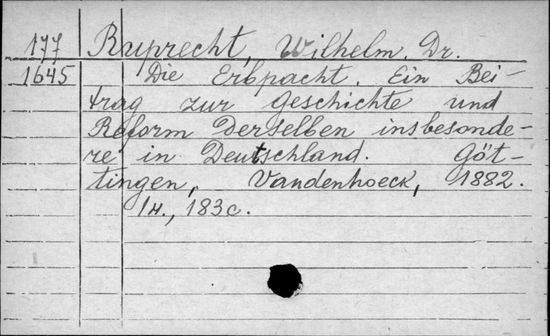 177 Ruprecht, Wilhelm. Dr.
1645 Die Erbpacht. Ein Bei-
trag zur Geschichte und
Reform derselben insbesonde-
re in Deutschland. Göt-
tingen, Vandenhoeck, 1882.
14., 183c.